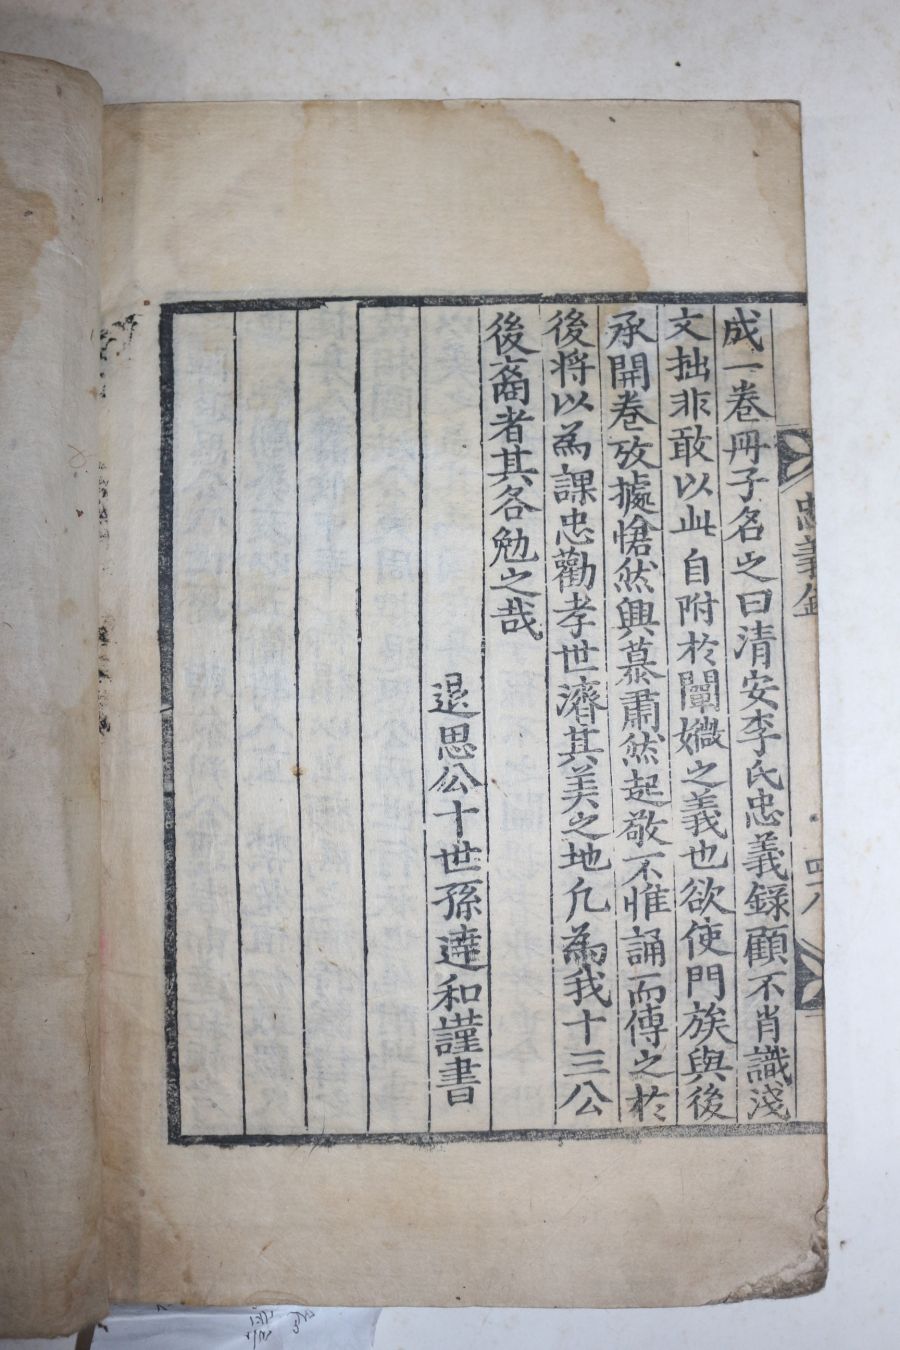 忠義錄 四八
成一卷冊子名之曰清安李氏忠義録顧不肖識淺
文拙非敢以此自附於闡㣲之義也欲使門族與後
承開卷攷據愴然興慕肅然起敬不惟誦而傳之於
後将以為課忠勸孝世濟其美之地凡為我十三公
後裔者其各勉之哉
退思公十世孫達和謹書